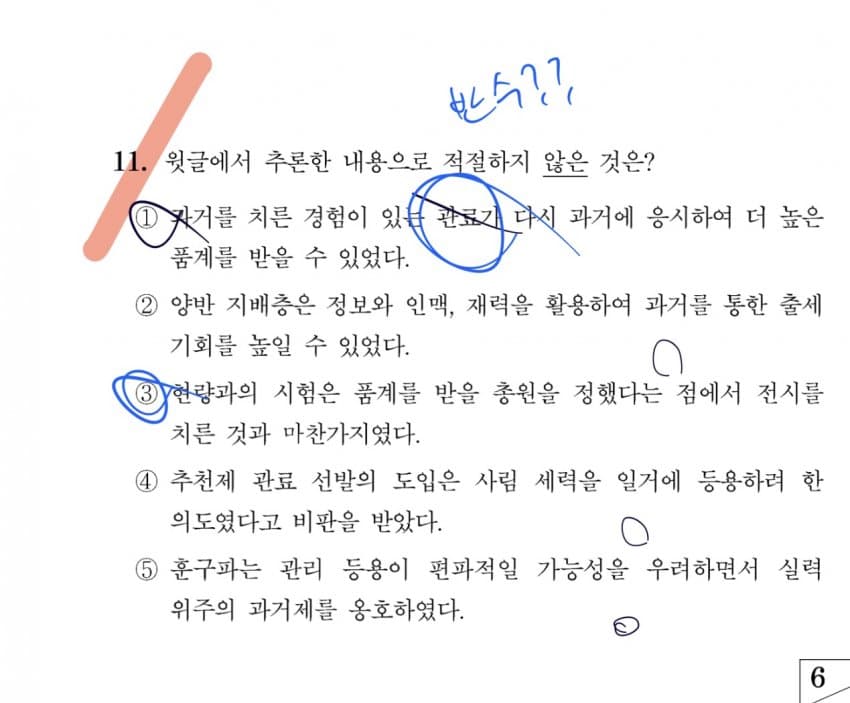 반수??
11. 윗글에서 추론한 내용으로 적절하지 않은 것은?
① 과거를 치른 경험이 있는 관료가 다시 과거에 응시하여 더 높은
품계를 받을 수 있었다.
② 양반 지배층은 정보와 인맥, 재력을 활용하여 과거를 통한 출세
기회를 높일 수 있었다.
③ 현량과의 시험은 품계를 받을 총원을 정했다는 점에서 전시를
치른 것과 마찬가지였다.
④ 추천제 관료 선발의 도입은 사림 세력을 일거에 등용하려 한
의도였다고 비판을 받았다.
⑤ 훈구파는 관리 등용이 편파적일 가능성을 우려하면서 실력
위주의 과거제를 옹호하였다.
6